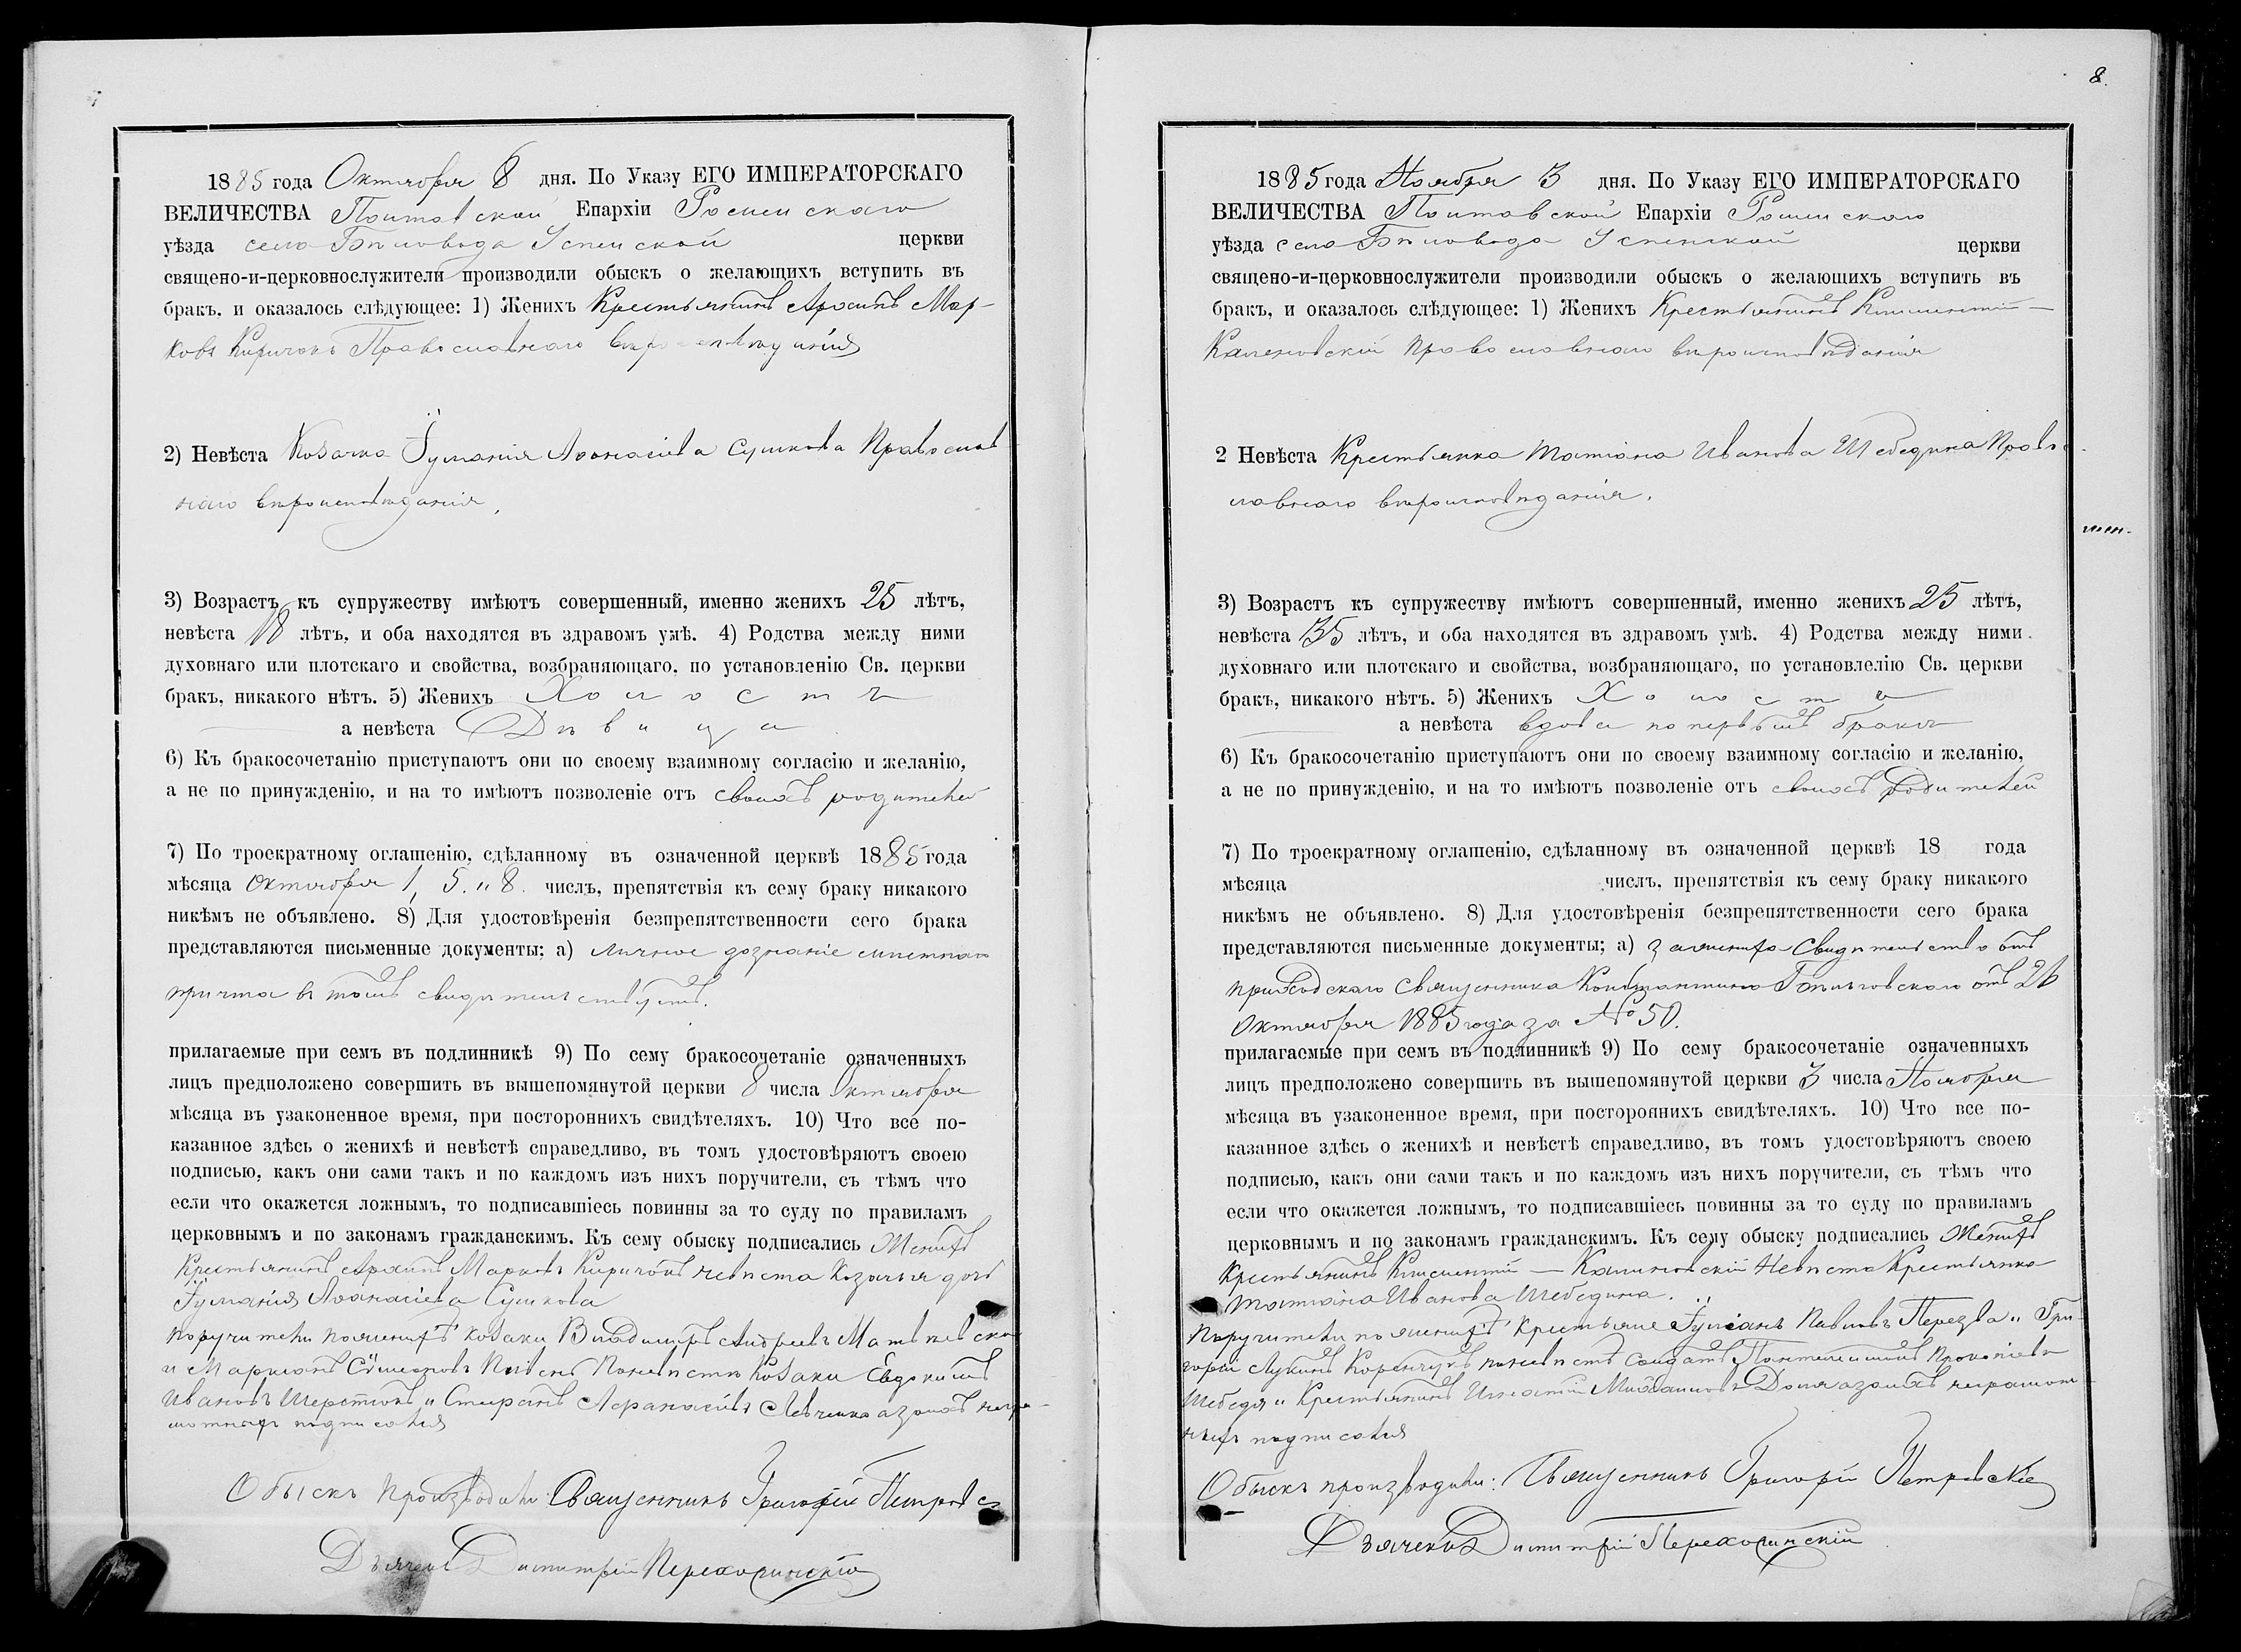 1885 года Октября 8 дня. По Указу ЕГО ИМПЕРАТОРСКАГО
ВЕЛИЧЕСТВА Полтавской Епархіи Роменскаго
уѣзда село Бѣловода Успенской церкви
священо-и-церковнослужители производили обыскъ о желающихъ вступить въ
бракъ, и оказалось слѣдующее: 1) Женихъ Крестьянинъ Мар-
ковъ Киричокъ Православнаго
2) Невѣста Козачка Іуліанія Аѳанасіева Сушкова Православ
наго вѣроисповѣданія,
3) Возрастъ къ супружеству имѣютъ совершенный, именно женихъ 25 лѣтъ,
невѣста 18 лѣтъ, и оба находятся въ здравомъ умѣ. 4) Родства между ними
духовнаго или плотскаго и свойства, возбраняющаго, по установленію Св. церкви
бракъ, никакого нѣтъ. 5) Женихъ Холостъ
а невѣста Дѣвица
6) Къ бракосочетанію приступаютъ они по своему взаимному согласію и желанію,
а не по принужденію, и на то имѣютъ позволеніе отъ своихъ родителей
7) По троекратному оглашенію, сдѣланному въ означенной церквѣ 1885 года
мѣсяца Октября 1, 5. и 8. числъ, препятствія къ сему браку никакого
никѣмъ не объявлено. 8) Для удостовѣренія безпрепятственности сего брака
представляются письменные документы; а) личное дознаніе мѣстнаго
причта въ томъ свидѣтельствуетъ.
прилагаемые при семъ въ подлинникѣ 9) По сему бракосочетаніе означенныхъ
лицъ предположено совершить въ вышепомянутой церкви 8 числа Октября
мѣсяца въ узаконенное время, при постороннихъ свидѣтеляхъ. 10) Что все по-
казанное здѣсь о женихѣ и невѣстѣ справедливо, въ томъ удостовѣряютъ своею
подписью, какъ они сами такъ и по каждомъ изъ нихъ поручители, съ тѣмъ что
если что окажется ложнымъ, то подписавшіесь повинны за то суду по правиламъ
церковнымъ и по законамъ гражданскимъ. Къ сему обыску подписались Женихъ
Крестьянинъ Марковъ Киричокъ невѣста Козачья дочь
Іуліанія Аѳанасіева Сушкова
Поручители по женихѣ козаки Владиміръ Андреевъ
и Маркіанъ Сѵмеоновъ По невѣстѣ Козаки Евдокимъ
Ивановъ Шерстюкъ и Стефанъ Афанасіевъ Левченко а за нихъ негра-
мотныхъ подписался
Обыскъ Производили: Священникъ Григорій Петровс
Дьячекъ Димитрій
8.
1885 года Ноября 3 дня. По Указу ЕГО ИМПЕРАТОРСКАГО
ВЕЛИЧЕСТВА Полтавской Епархіи Роменскаго
уѣзда село Бѣловода Успенской церкви
священо-и-церковнослужители производили обыскъ о желающихъ вступить въ
бракъ, и оказалось слѣдующее: 1) Женихъ Крестьянинъ Климентій —
Калиновскій Православнаго вѣроисповѣданія
2 Невѣста Крестьянка Татіана Иванова Шебедина Право
славнаго вѣроисповѣданія.
3) Возрастъ къ супружеству имѣютъ совершенный, именно женихъ 25 лѣтъ,
невѣста 35 лѣтъ, и оба находятся въ здравомъ умѣ. 4) Родства между ними
духовнаго или плотскаго и свойства, возбраняющаго, по установлелію Св. церкви
бракъ, никакого нѣтъ. 5) Женихъ Холостъ
а невѣста вдова по первымъ бракѣ
6) Къ бракосочетанію приступаютъ они по своему взаимному согласію и желанію,
а не по принужденію, и на то имѣютъ позволеніе отъ своихъ Родителей
7) По троекратному оглашенію, сдѣланному въ означенной церквѣ 18 года
мѣсяца числъ, препятствія къ сему браку никакого
никѣмъ не объявлено. 8) Для удостовѣренія безпрепятственности сего брака
представляются письменные документы; а) жениха Свидѣтельство отъ
приходскаго Священника Константина отъ 26
Октября 1885 года за № 50.
прилагаемые при семъ въ подлинникѣ 9) По сему бракосочетаніе означенныхъ
лицъ предположено совершить въ вышепомянутой церкви 3 числа Ноября
мѣсяца въ узаконенное время, при постороннихъ свидѣтеляхъ. 10) Что все по-
казанное здѣсь о женихѣ и невѣстѣ справедливо, въ томъ удостовѣряютъ своею
подписью, какъ они сами такъ и по каждомъ изъ нихъ поручители, съ тѣмъ что
если что окажется ложнымъ, то подписавшіесь повинны за то суду по правиламъ
церковнымъ и по законамъ гражданскимъ. Къ сему обыску подписались Женихъ
Крестьянинъ Климентій — Калиновскій Невѣста Крестьянка
Татіана Иванова Шебедина.
Поручители по женихѣ Крестьяне Іуліанъ Павловъ Перезва и Гри-
горій Лукинъ по невѣстѣ Солдатъ Пантелеимонъ Прокопіевъ
Шебедя и Крестьянинъ Игнатій Михайловъ а за нихъ неграмот
ныхъ подписался
Обыскъ производили: Священникъ Григорій Петровскій
Дьячекъ Димитрій